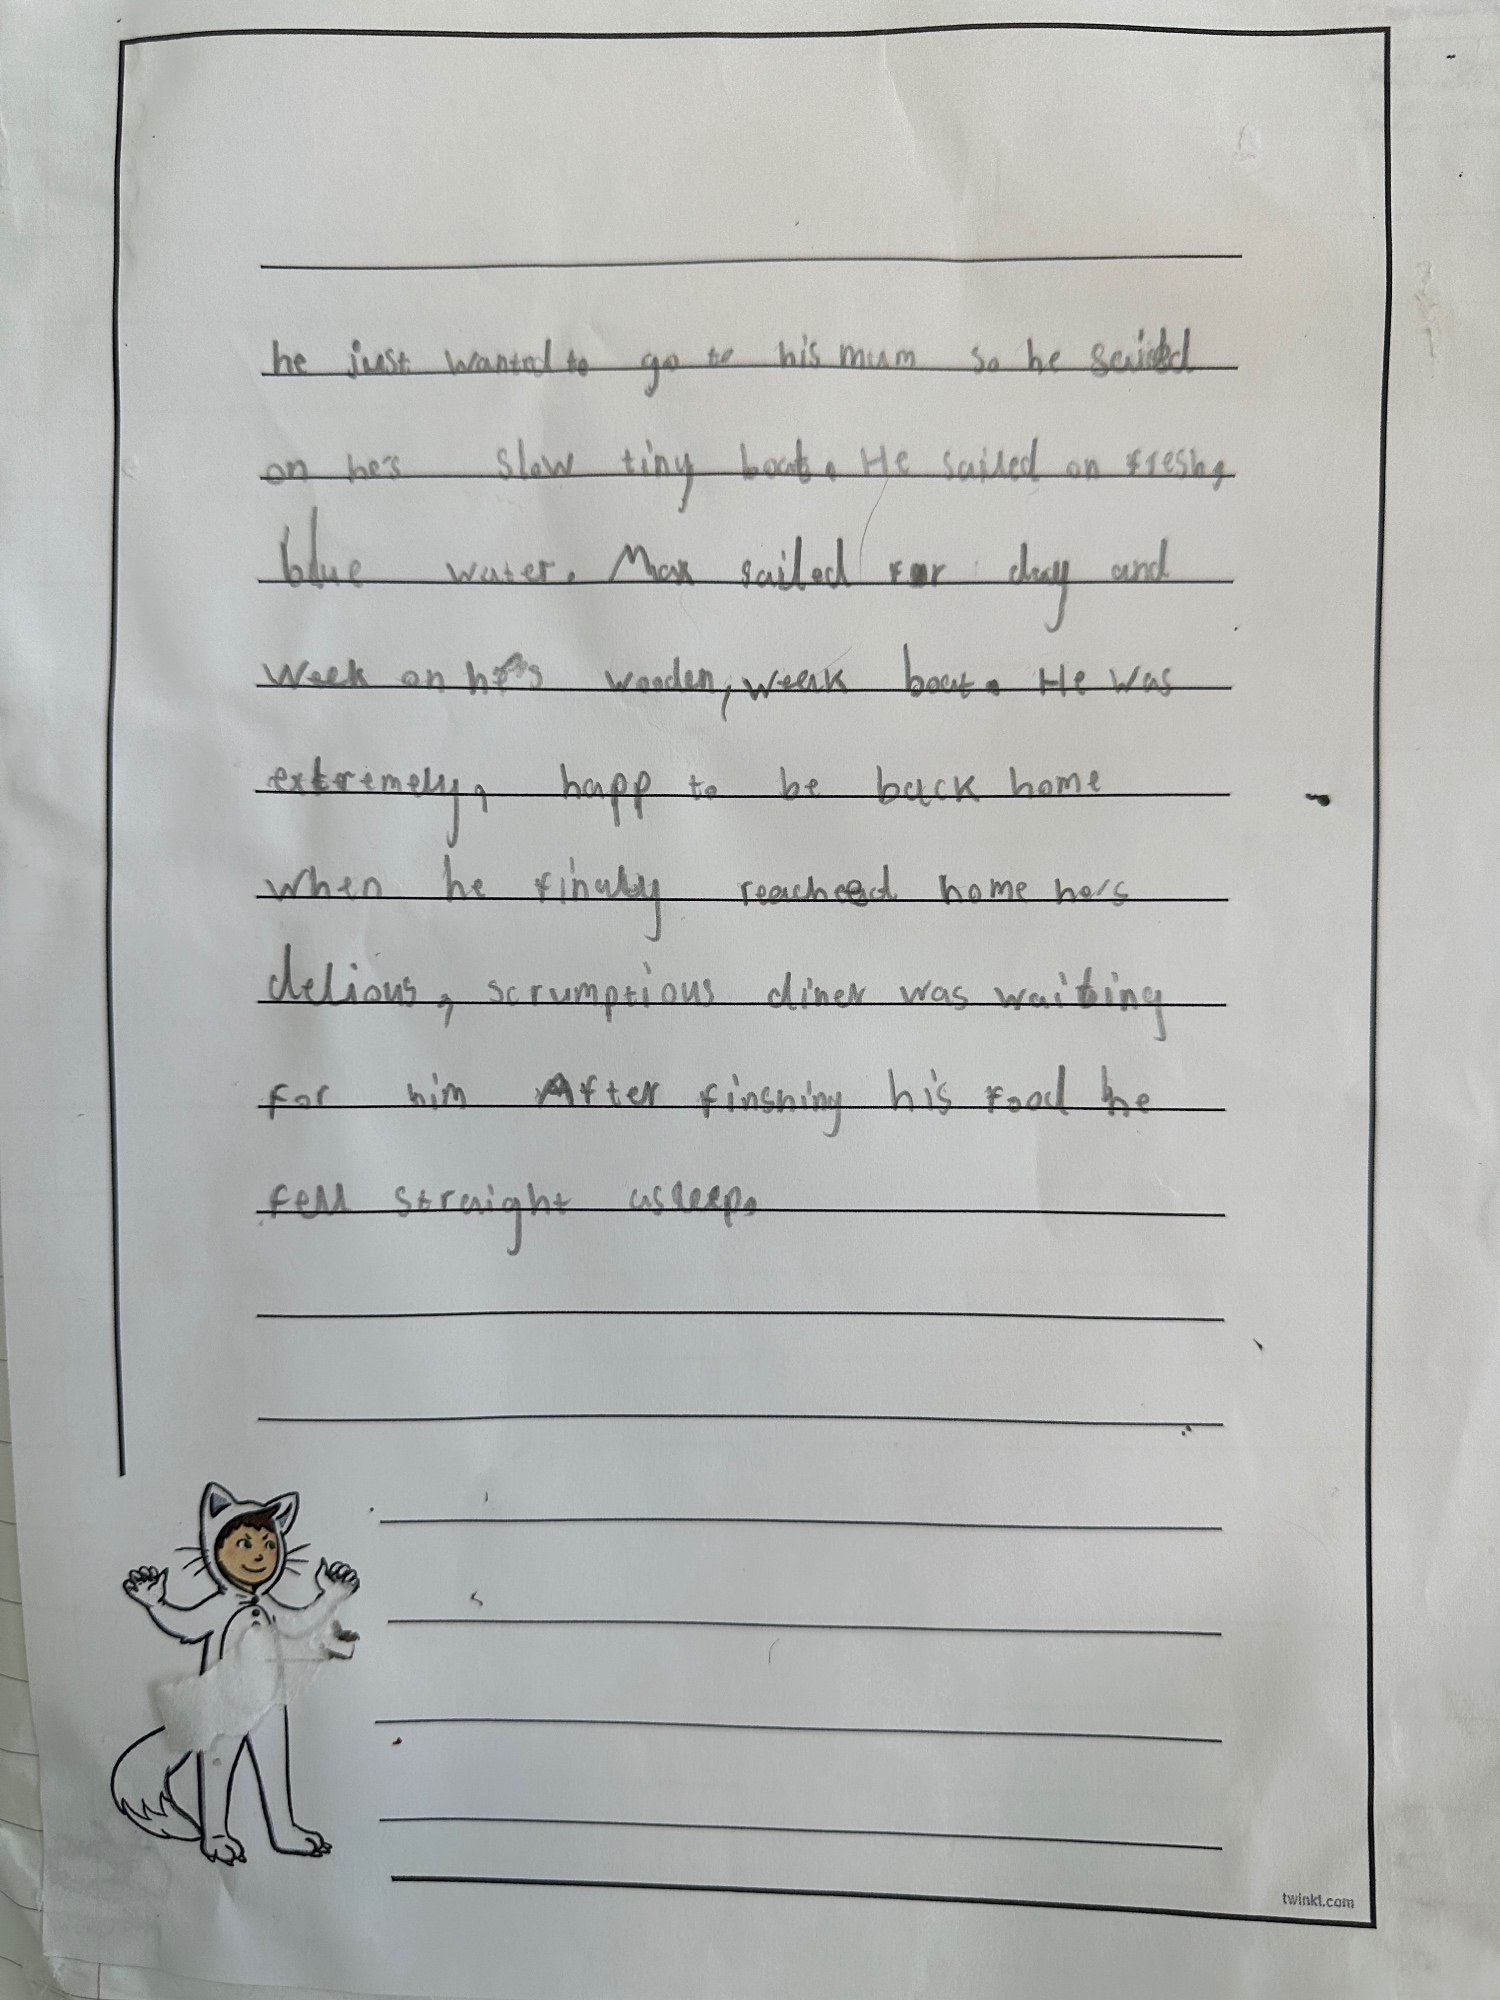 he just wanted to go to his mum so he sailed
on he's slow tiny boat. He sailed on fresh,
blue water. Max sailed for day and
week on he's wooden, weak boat. He was
extremely, happ to be back home
when he finaly reached home he's
delious, scrumptious diner was waiting
for him After finshing his food he
fell straight asleep.
twinkl.com